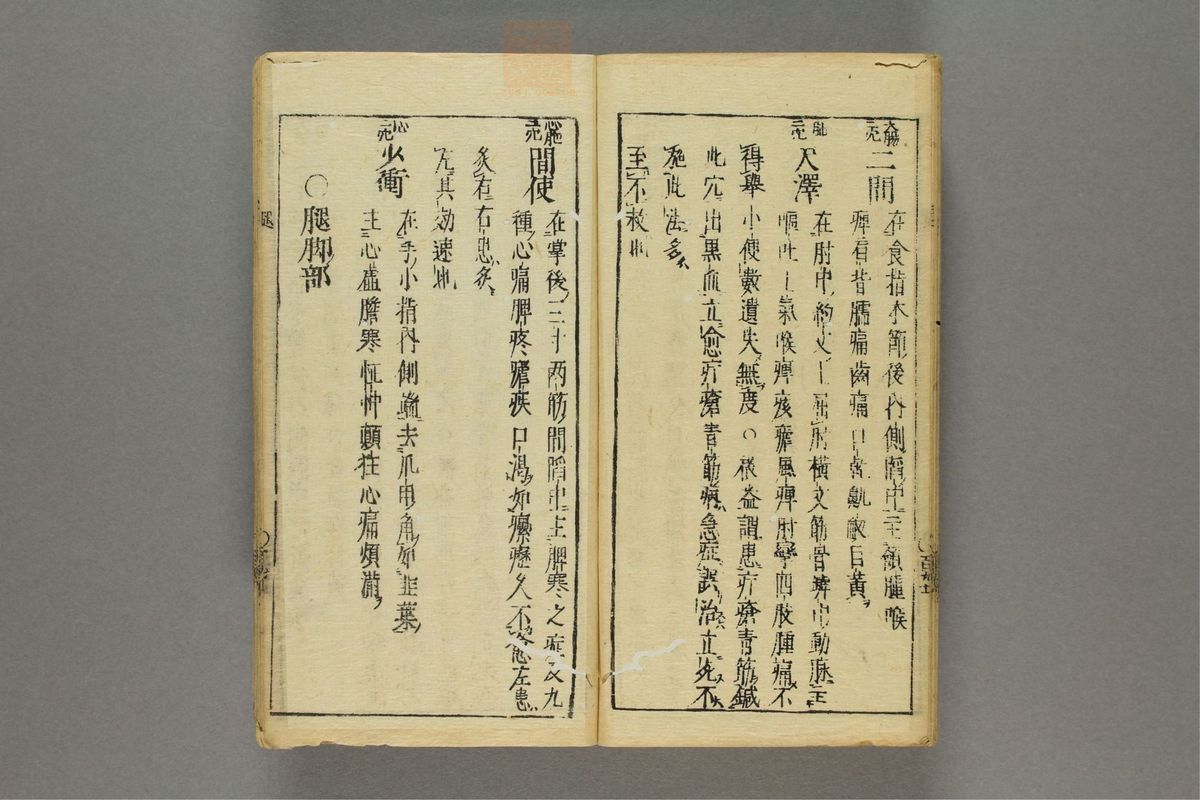 大腸 二穴
二間
在食指本節後內側陷中主頷腫喉
痺肩背臑痛齒痛口乾鼽衄目黃
肺 二穴
尺澤
在肘中約文上屈肘橫文筋骨罅中動脉主
嘔吐上氣喉痺咳瘧風痺肘攣四肢腫痛不
得舉小便數遺失無度○ 益謂患疔瘡青筋鍼
此穴出黑血立愈疔瘡青筋病急症誤治立死不
施此法多
至不救也
心胞 二穴
間使
在掌後三寸两筋間陷中主脾寒之症及九
種心痛脾疼瘧疾口渴如瘰癧久不愈左患
灸右右患灸
左其効速也
心 二穴
少衝
在手小指內側端去爪甲角如韭葉
主心虛膽寒怔忡顛狂心痛煩滿
○腿脚部
腿